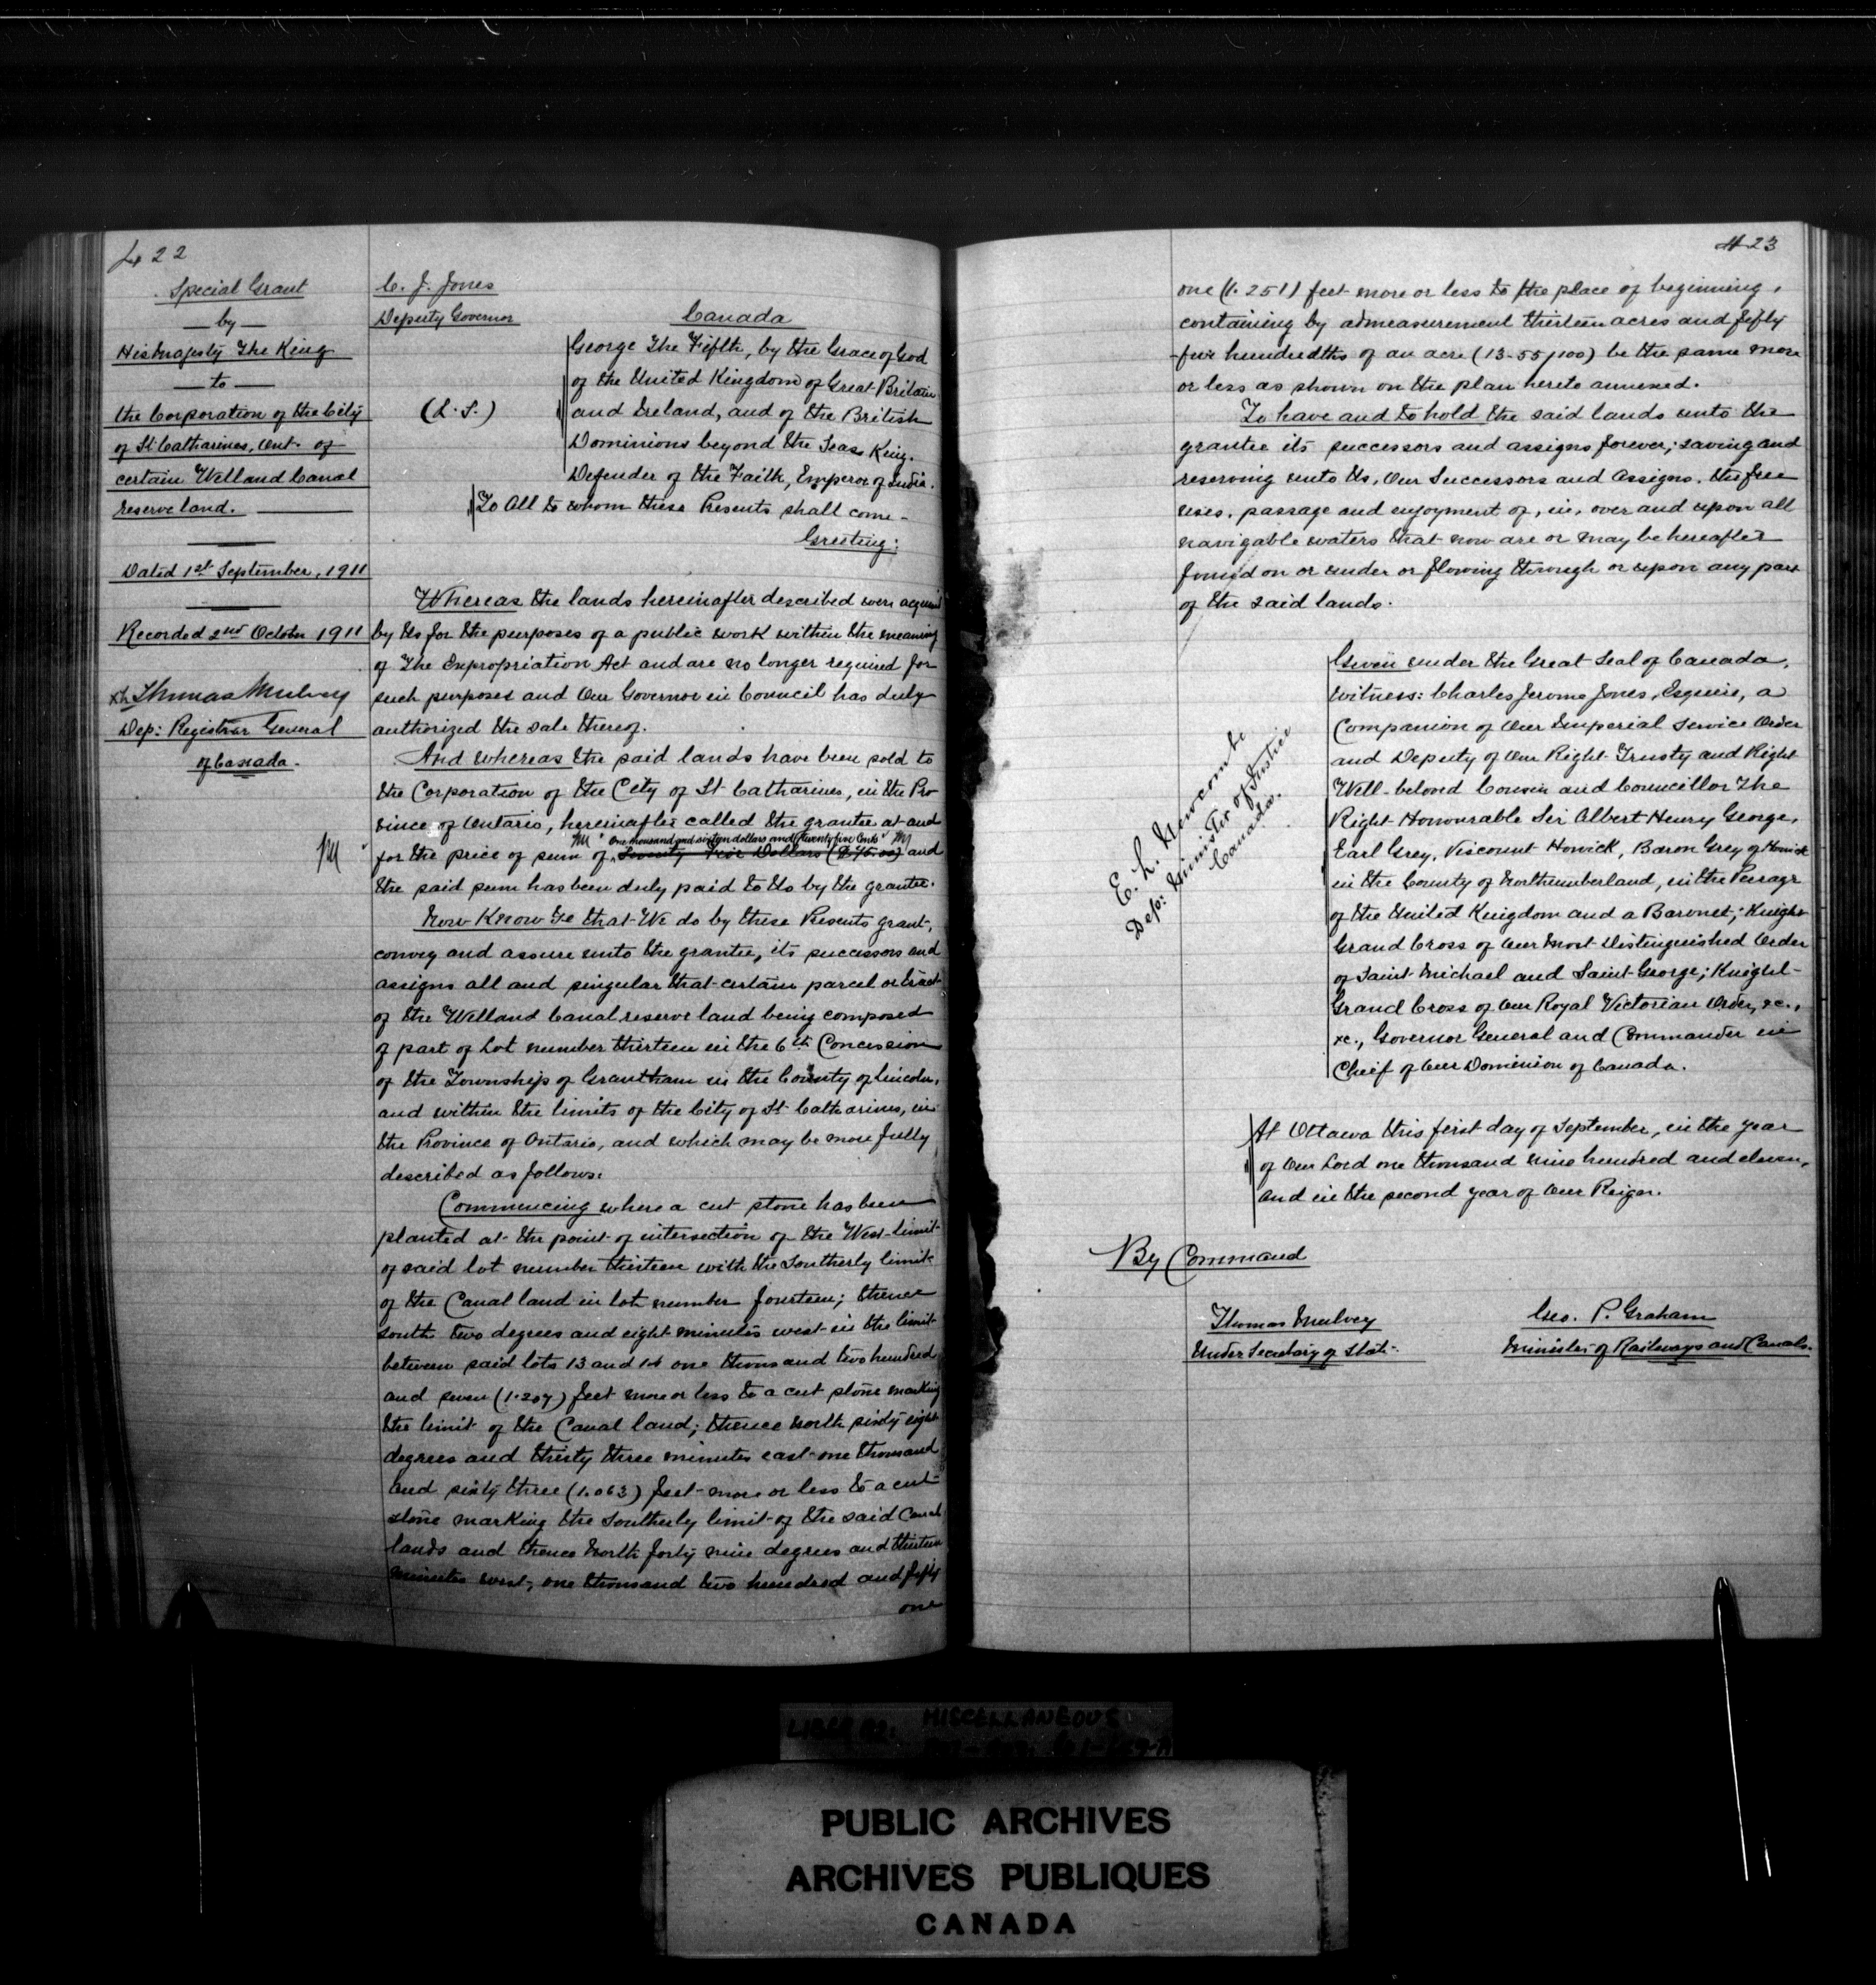 422
Special Grant
— by —
His Majesty The King
— to —
the Corporation of the City
of St. Catharines, Ont. of
certain Welland Canal
reserve land.
Dated 1st September, 1911
Recorded 2nd October 1911
Thomas Mulvey
Dep: Registrar General
of Canada.
C. J. Jones
Deputy Governor
Canada
(L. S.)
George The Fifth, by the Grace of God
of the United Kingdom of Great Britain
and Ireland, and of the British
Dominions beyond the Seas King.
Defender of the Faith, Emperor of India.
To All to whom these Presents shall come -
Greeting:
Whereas the lands hereinafter described were acquired
by Us for the purposes of a public work within the meaning
of The Expropriation Act and are no longer required for
such purposes and Our Governor in Council has duly
authorized the sale thereof.
And whereas the said lands have been sold to
the Corporation of the City of St Catharines, in the Pro
vince of Ontario, hereinafter called the grantee at and
M "One thousand and sixteen dollars and twenty five Cents" M
M for the price of sum of Seventy Five Dollars ($75.00) and
the said sum has been duly paid to Us by the grantee.
Now Know Ye that We do by these Presents grant,
convey and assure unto the grantee, its successors and
assigns all and singular that certain parcel or tract
of the Welland Canal reserve land being composed
of part of Lot number thirteen in the 6th Concession
of the Township of Grantham in the County of Lincoln,
and within the limits of the City of St Catharines, in
the Province of Ontario, and which may be more fully
described as follows:
Commencing where a cut stone has been
planted at the point of intersection of the West limit
of said lot number thirteen with the Southerly limit
of the Canal land in lot number fourteen; thence
south two degrees and eight minutes west in the limit
between said lots 13 and 14 one thousand two hundred
and seven (1.207) feet more or less to a cut stone marking
the limit of the Canal land; thence North sixty eight
degrees and thirty three minutes east one thousand
and sixty three (1.063) feet more or less to a cut
stone marking the Southerly limit of the said Canal
lands and thence North forty nine degrees and thirteen
minutes west, one thousand two hundred and fifty
one
423
one (1.251) feet more or less to the place of beginning,
containing by admeasurement thirteen acres and fifty
five hundredths of an acre (13-55/100) be the same more
or less as shown on the plan hereto annexed.
To have and to hold the said lands unto the
grantee its successors and assigns forever; saving and
reserving unto Us, Our Successors and Assigns, the free
uses, passage and enjoyment of, in, over and upon all
navigable waters that now are or may be hereafter
found on or under or flowing through or upon any part
of the said lands.
E. L. Newcombe
Dep: Minister of Justice
Canada.
Given under the Great Seal of Canada,
Witness: Charles Jerome Jones, Esquire, a
Companion of Our Imperial Service Order
and Deputy of Our Right Trusty and Right
Well-beloved Cousin and Councillor The
Right Honourable Sir Albert Henry George,
Earl Grey, Viscount Howick, Baron Grey of Howick
in the County of Northumberland, in the Peerage
of the United Kingdom and a Baronet; Knight
Grand Cross of Our Most Distinguished Order
of Saint Michael and Saint George; Knight
Grand Cross of Our Royal Victorian Order, &c.,
&c., Governor General and Commander in
Chief of Our Dominion of Canada.
At Ottawa this first day of September, in the year
of Our Lord one thousand nine hundred and eleven,
and in the second year of Our Reign.
By Command
Thomas Mulvey
Under Secretary of State.
Geo. P. Graham
Minister of Railways and Canals.
LIBER NO. MISCELLANEOUS
PUBLIC ARCHIVES
ARCHIVES PUBLIQUES
CANADA